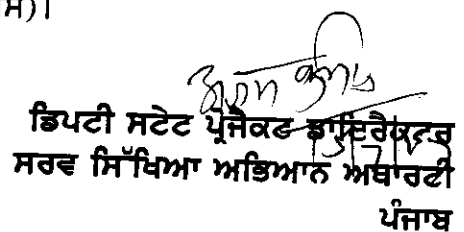 ਸ)।
ਡਿਪਟੀ ਸਟੇਟ ਪ੍ਰੋਜੈਕਟ ਡਾਇਰੈਕਟਰ
ਸਰਵ ਸਿੱਖਿਆ ਅਭਿਆਨ ਅਥਾਰਟੀ
ਪੰਜਾਬ